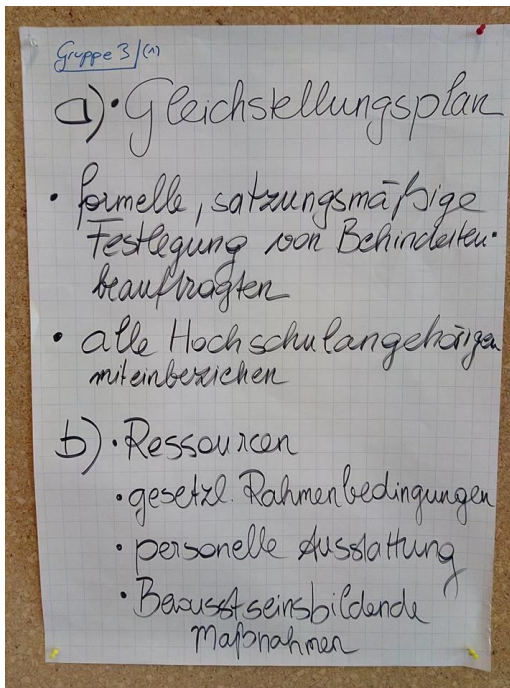 Gruppe 3/(1)
a) • Gleichstellungsplan
• formelle, satzungsmäßige
Festlegung von Behinderten-
beauftragten
• alle Hochschulangehörigen
miteinbeziehen
b) • Ressourcen
• gesetzl. Rahmenbedingungen
• personelle Ausstattung
• Bewusstseinsbildende
Maßnahmen